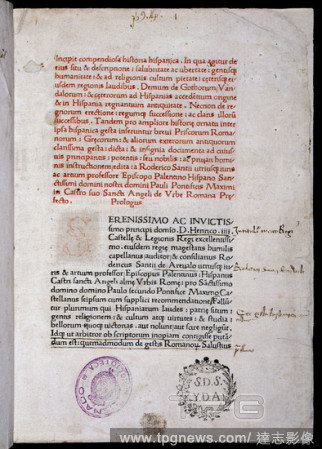 Incipit compendiosa historia hispanica. In qua agitur de
eius situ & descriptione: salubritate ac ubertate: gentisq;
humanitate: & ad religionis cultum pietate: cęterisq;
eiusdem regionis laudibus. Demum de Gothorum: Van
dalorum: & cęterorum ad Hispanias accedentium origine
& in Hispania regnantium antiquitate. Necnon de re-
gnorum erectione: regumq; successione: ac claris illorū
successibus. Tandem pro ampliore historię ornatu inter
ipsa hispanica gesta inseruntur breui Priscorum Roma
norum: Gręcorum: & aliorum exterorum antiquorum
clarissima gesta: dicta: & insignia documenta ad eiusq
uis principantis: potentis: seu nobilis: ac priuati homi-
nis instructionem: edita: a Roderico Santii utriusq; iuris
ac artium professor Episcopo Palentino Hispano San-
ctissimi domini nostri domini Pauli Pontificis Maximi
in Castro suo Sancti Angeli de Vrbe Romana Prę
fecto.
Prologus
ERENISSIMO AC INVICTIS
simo principi domino. D. Henrico. iiii.
Castellę & Legionis Regi excellentissi
mo. eiusdem regię magestatis humilis
capellanus: auditor: & consiliarius Ro
dericus Santii de Areualo utriusq; iu-
ris & artium professor Episcopus Palentinus: Hispanus
Castri sancti Angeli almę Vrbis Romę: pro Sāctissimo
domino domino Paulo secundo Pontifice Maximo Ca-
stellanus seipsum cum supplici recommendatione. Fallū-
tur plurimum qui Hispaniarum laudes: patrię situm:
genus religionem: & cultum atq; uirtutes: & studia:
bellorum quoq; uictorias: aut nolunt aut scire negligūt.
Ideq; ut arbitror ob scriptorum inopiam contigisse putā-
dum est: quemadmodum de gestis Romanoᵣ Salustius
S.D.S.
YDA
TPG
www.tpgnews.com / 達志影像